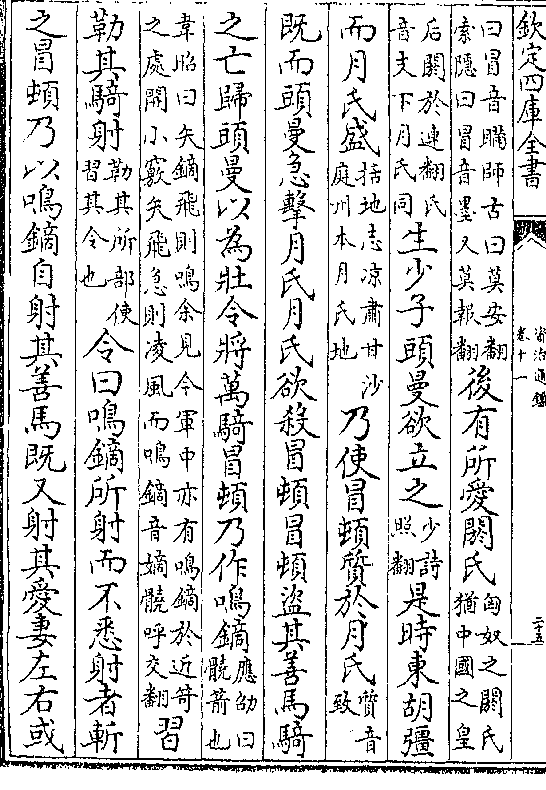 欽定四庫全書
資治通鑑
卷十一
二十五
曰冒音瞞師古曰莫安翻
索隱曰冒音墨又莫報翻
後有所愛閼氏
匈奴之閼氏
猶中國之皇
后閼於連翻氏
音支下月氏同
生少子頭曼欲立之
少詩
照翻
是時東胡彊
而月氏盛
括地志凉肅甘沙
庭州本月氏地
乃使冒頓質於月氏
質音
致
既而頭曼急擊月氏月氏欲殺冒頓冒頓盜其善馬騎
之亡歸頭曼以為壯令將萬騎冒頓乃作鳴鏑
應劭曰
髐箭也
韋昭曰矢鏑飛則鳴余見今軍中亦有鳴鏑於近笴
之處開小竅矢飛急則凌風而鳴鏑音嫡髐呼交翻
習
勒其騎射
勒其所部使
習其令也
令曰鳴鏑所射而不悉射者斬
之冒頓乃以鳴鏑自射其善馬既又射其愛妻左右或